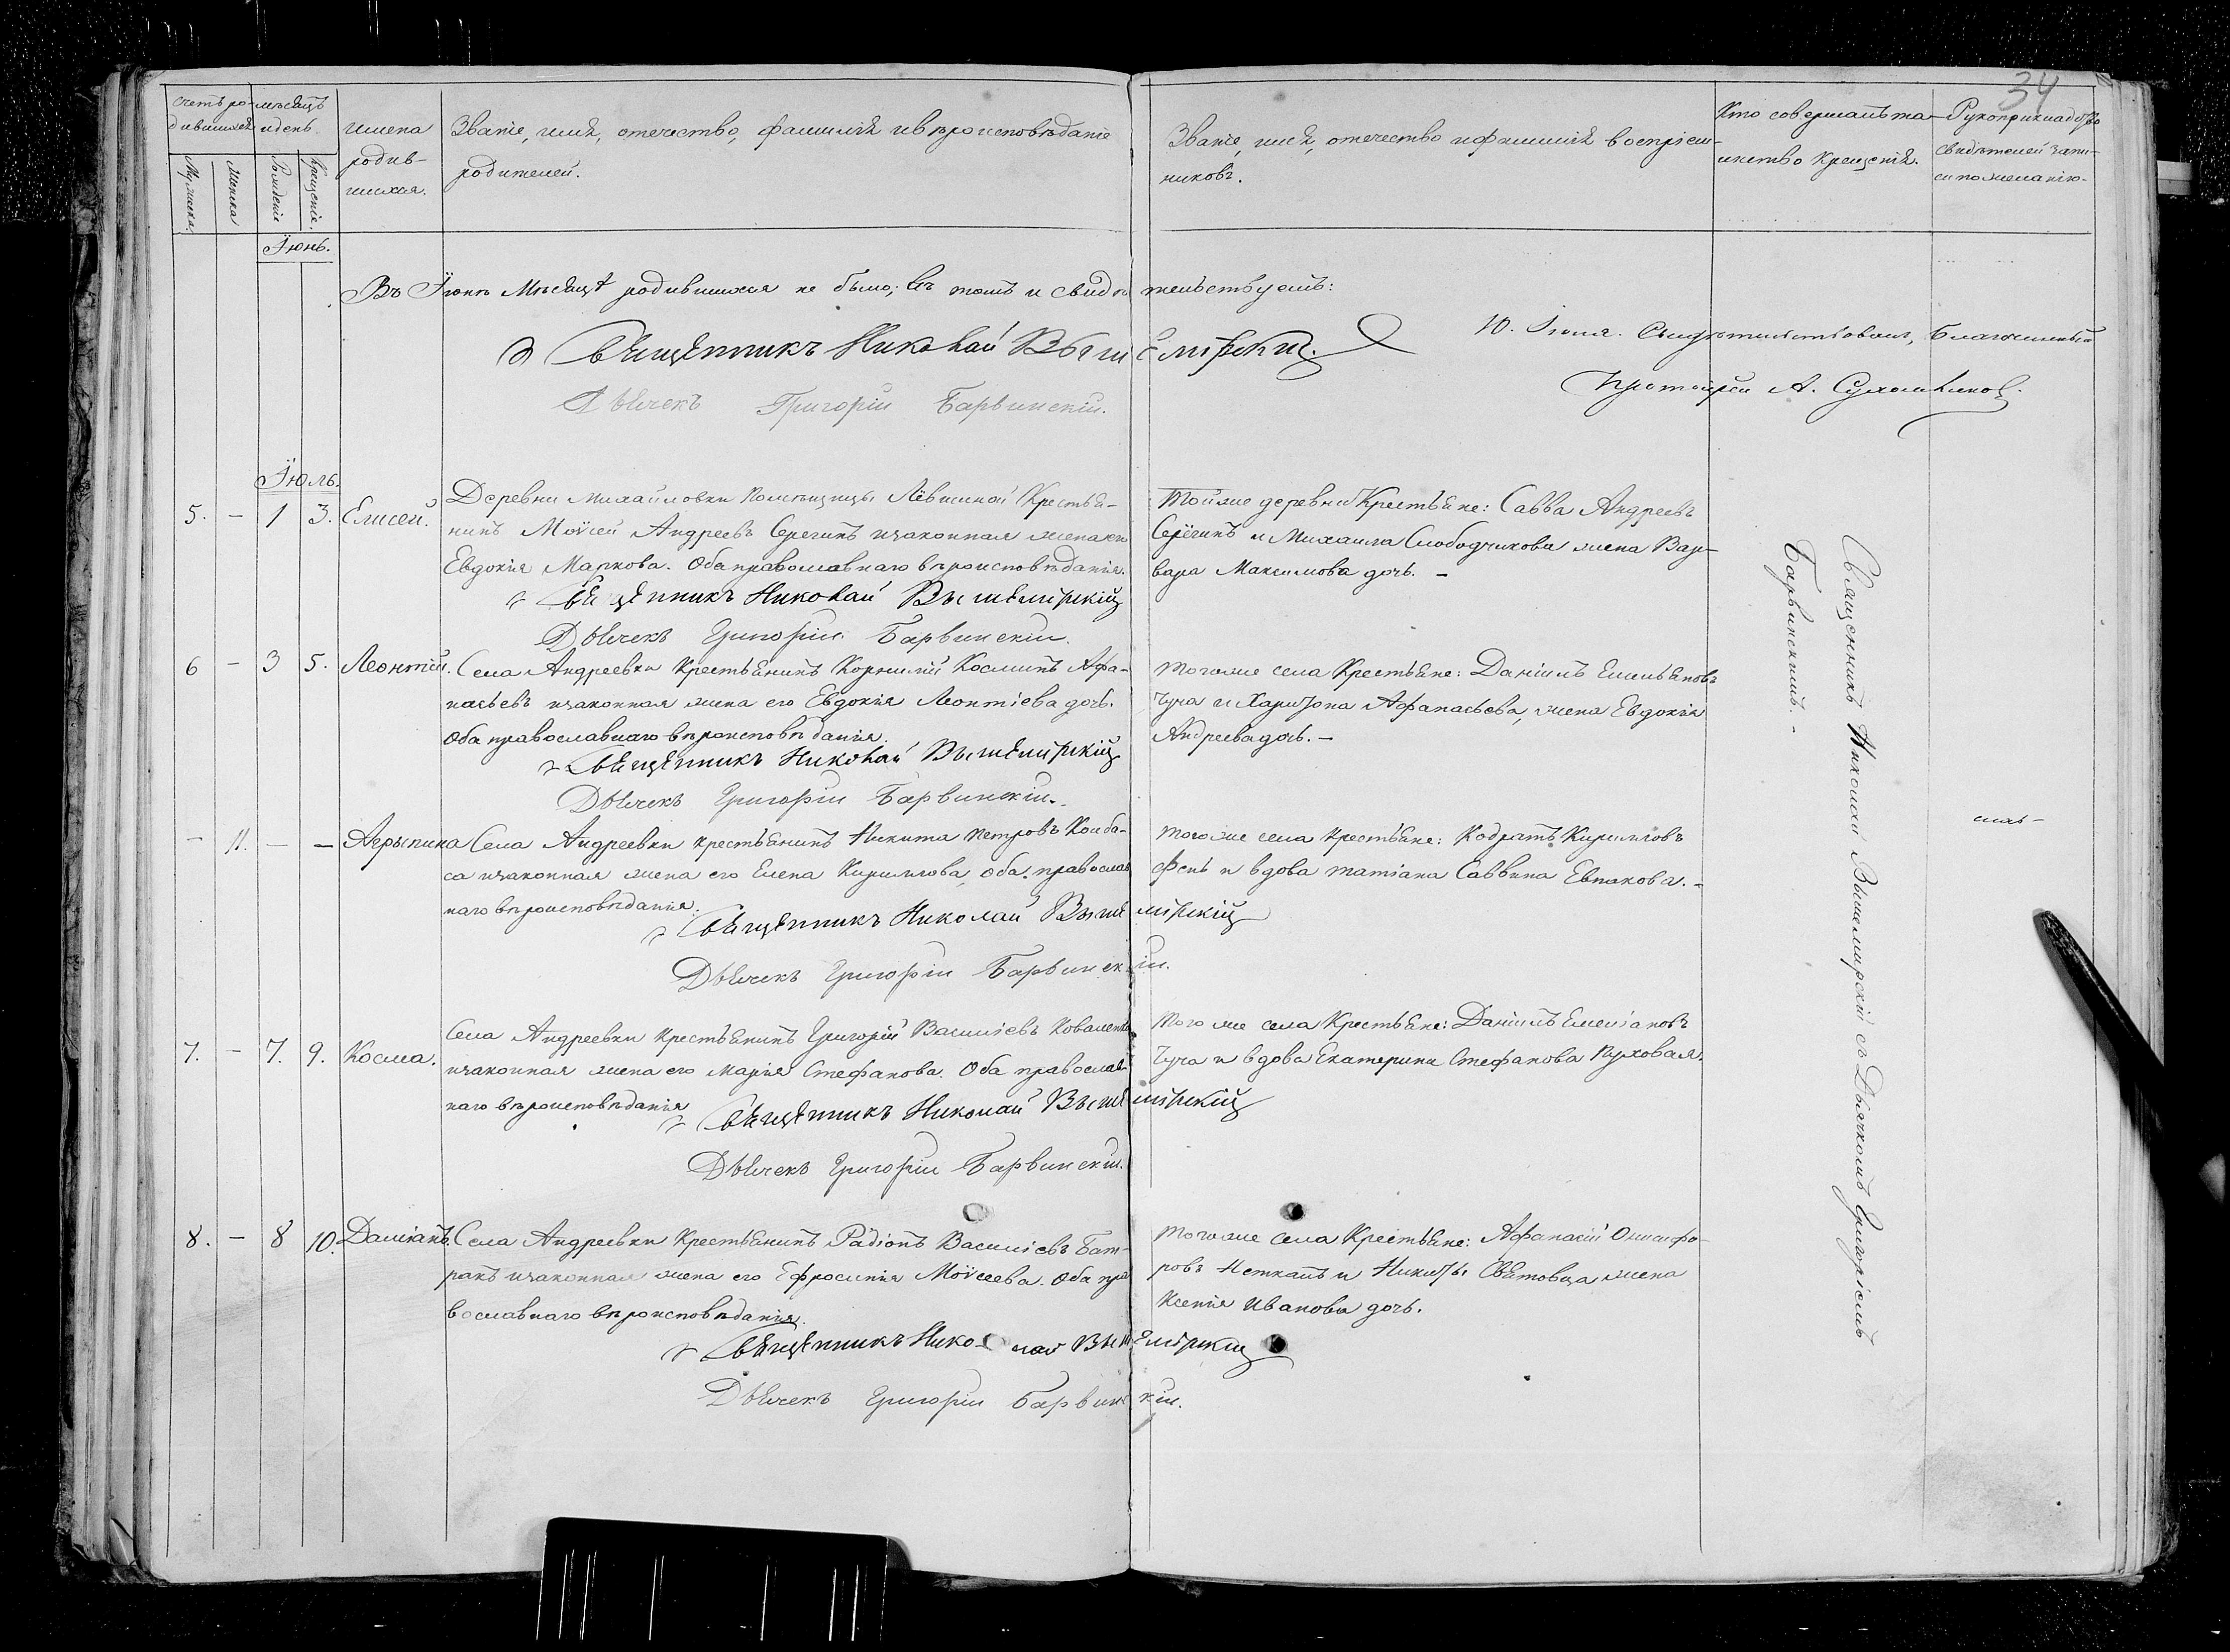 34
Счетъ ро- мѣсяцъ
дившихся и день.
Мужеска.
Женска
Рожденіе
Крещеніе.
имена
родив-
шихся.
Званіе, имя, отечество, фамилія и вѣроисповѣданіе
родителей.
Званіе, имя, отечество и фамилія воспріем-
никовъ.
Кто совершалъ та-
инство крещенія.
Рукоприкладство
свидѣтелей запи-
си по желанію.
Іюнь.
Въ Іюнѣ Мѣсяцѣ родившихся не было; въ томъ и свидѣтельствуемъ:
Священникъ Николай Вышемірскій.
Дьячекъ Григорій Барвинскій.
10. Іюля. Свидѣтельствовалъ, Благочинный
Протоіерей А.
Іюль.
5. - 1 3. Елисей.
Деревни Михайловки Помѣщицы Лёвшиной Крестья-
нинъ Моѵсей Андреевъ Серёгинъ и законная жена его
Евдокія Маркова. Оба православнаго вѣроисповѣданія.
Священникъ Николай Вышемірскій
Дьячекъ Григорій Барвинскій.
Той же деревни Крестьяне: Савва Андреевъ
Серёгинъ и Михаила Слободчикова жена Вар-
вара Максимова дочь. -
6 - 3 5. Леонтій.
Села Андреевки Крестьянинъ Корнилій Косминъ Афа-
насьевъ и законная жена его Евдокія Леонтіева дочь.
Оба православнаго вѣроисповѣданія.
Священникъ Николай Вышемірскій
Дьячекъ Григорій Барвинскій.
Того же села Крестьяне: Даніилъ Емельяновъ
Чуча и Харитона Афанасьева, жена Евдокія
Андреева дочь. -
- 11. - - Агрыпина
Села Андреевки крестьянинъ Никита Петровъ Колба-
са и законная жена его Елена Кирилова, оба православ
наго вѣроисповѣданія.
Священникъ Николай Вышемірскій
Дьячекъ Григорій Барвинскій.
Того же села крестьяне: Кодратъ Кириловъ
Фень и вдова татіана Саввина Евтакова. -
7. - 7. 9. Косма.
Села Андреевки Крестьянинъ Григорій Василіевъ Коваленко
и законная жена его Марія Стефанова. Оба православ
наго вѣроисповѣданія
Священникъ Николай Вышемірскій
Дьячекъ Григорій Барвинскій.
Того же села Крестьяне: Даніилъ Емеліановъ
Чуча и вдова Екатерина Стефанова Пуховая.
8. - 8 10. Даміанъ.
Села Андреевки Крестьянинъ Радіонъ Василіевъ Бат-
ракъ и законная жена его Ефросинія Моѵсеева. Оба пра
вославнаго вѣроисповѣданія.
Священникъ Николай Вышемірскій
Дьячекъ Григорій Барвинскій.
Того же села Крестьяне: Афанасій Онисифо-
ровъ Неткачъ и Никиты Святовца жена
Ксенія Иванова дочь.
Священникъ Николай Вышемирскій съ Дьячкомъ Григоріемъ
Барвинскимъ. -